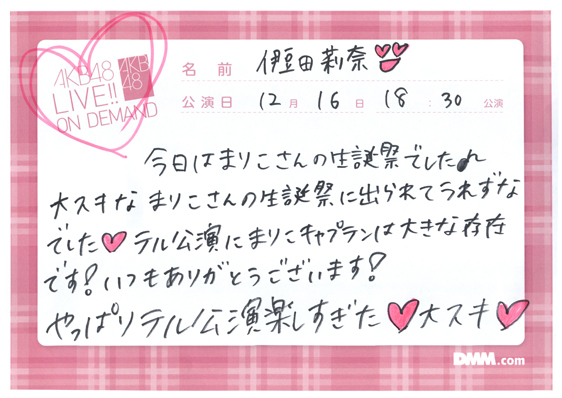 AKB48
LIVE!!
ON DEMAND
AKB
48
名前 伊豆田莉奈
公演日 12月16日 18:30公演
今日はまりこさんの生誕祭でした♪
大スキなまりこさんの生誕祭に出られてうれずな
でした♥テル公演にまりこキャプランは大きな存在
です!いつもありがとうございます!
やっぱりテル公演楽しすぎた♥大スキ♥
DMM.com